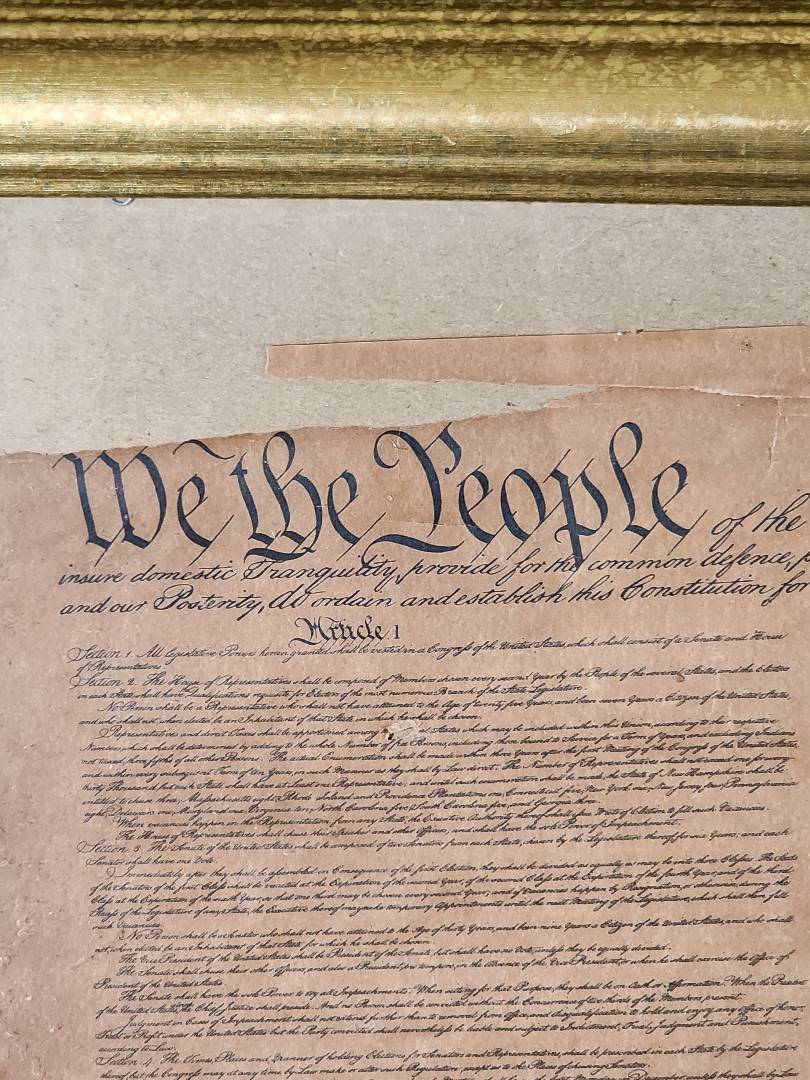 We the People of the
insure domestic Tranquility, provide for the common defence,
and our Posterity, do ordain and establish this Constitution for
Article I
Section 1. All legislative Powers herein granted shall be vested in a Congress of the United States, which shall consist of a Senate and House
of Representatives.
Section 2. The House of Representatives shall be composed of Members chosen every second Year by the People of the several States, and the Electors
in each State shall have Qualifications requisite for Electors of the most numerous Branch of the State Legislature.
No Person shall be a Representative who shall not have attained to the Age of twenty five Years, and been seven Years a Citizen of the United States,
and who shall not, when elected, be an Inhabitant of that State in which he shall be chosen.
Representatives and direct Taxes shall be apportioned among States which may be included within this Union, according to their respective
Numbers, which shall be determined by adding to the whole Number of free Persons, including those bound to Service for a Term of Years, and excluding Indians
not taxed, three fifths of all other Persons. The actual Enumeration shall be made within three Years after the first Meeting of the Congress of the United States,
and within every subsequent Term of ten Years, in such Manner as they shall by Law direct. The Number of Representatives shall not exceed one for every
thirty Thousand, but each State shall have at Least one Representative; and until such enumeration shall be made, the State of New Hampshire shall be
entitled to chuse three, Massachusetts eight, Rhode Island and Providence Plantations one, Connecticut five, New York six, New Jersey four, Pennsylvania
eight, Delaware one, Maryland six, Virginia ten, North Carolina five, South Carolina five, and Georgia three.
When vacancies happen in the Representation from any State, the Executive Authority thereof shall issue Writs of Election to fill such Vacancies.
The House of Representatives shall chuse their Speaker and other Officers; and shall have the sole Power of Impeachment.
Section 3. The Senate of the United States shall be composed of two Senators from each State, chosen by the Legislature thereof, for six Years; and each
Senator shall have one Vote.
Immediately after they shall be assembled in Consequence of the first Election, they shall be divided as equally as may be into three Classes. The Seats
of the Senators of the first Class shall be vacated at the Expiration of the second Year, of the second Class at the Expiration of the fourth Year, and of the third
Class at the Expiration of the sixth Year, so that one third may be chosen every second Year; and if Vacancies happen by Resignation, or otherwise, during the
Recess of the Legislature of any State, the Executive thereof may make temporary Appointments until the next Meeting of the Legislature, which shall then fill
such Vacancies.
No Person shall be a Senator who shall not have attained to the Age of thirty Years, and been nine Years a Citizen of the United States, and who shall
not, when elected, be an Inhabitant of that State for which he shall be chosen.
The Vice President of the United States shall be President of the Senate, but shall have no Vote, unless they be equally divided.
The Senate shall chuse their other Officers, and also a President pro tempore, in the Absence of the Vice President, or when he shall exercise the Office of
President of the United States.
The Senate shall have the sole Power to try all Impeachments. When sitting for that Purpose, they shall be on Oath or Affirmation. When the President
of the United States, the Chief Justice shall preside: And no Person shall be convicted without the Concurrence of two thirds of the Members present.
Judgment in Cases of Impeachment shall not extend further than to removal from Office, and disqualification to hold and enjoy any Office of honor,
Trust or Profit under the United States: but the Party convicted shall nevertheless be liable and subject to Indictment, Trial, Judgment and Punishment,
according to Law.
Section 4. The Times, Places and Manner of holding Elections for Senators and Representatives, shall be prescribed in each State by the Legislature
thereof; but the Congress may at any time by Law make or alter such Regulations, except as to the Places of chusing Senators.